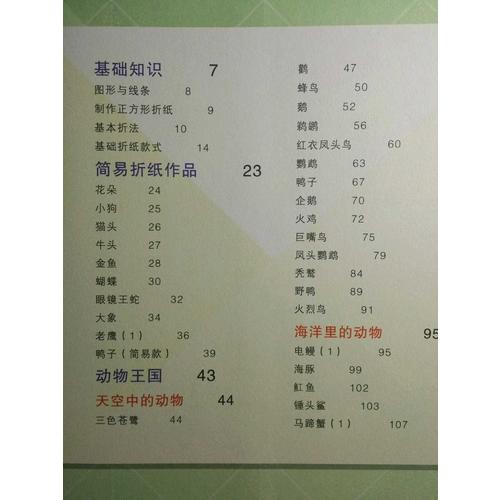 基础知识 7
图形与线条 8
制作正方形折纸 9
基本折法 10
基础折纸款式 14
简易折纸作品 23
花朵 24
小狗 25
猫头 26
牛头 27
金鱼 28
蝴蝶 30
眼镜王蛇 32
大象 34
老鹰(1) 36
鸭子(简易款) 39
动物王国 43
天空中的动物 44
三色苍鹭 44
鹳 47
蜂鸟 50
鹅 52
鹈鹕 56
红衣凤头鸟 60
鹦鹉 63
鸭子 67
企鹅 70
火鸡 72
巨嘴鸟 75
凤头鹦鹉 79
秃鹫 84
野鸭 89
火烈鸟 91
海洋里的动物 95
电鳗(1) 95
海豚 99
魟鱼 102
锤头鲨 103
马蹄蟹(1) 107